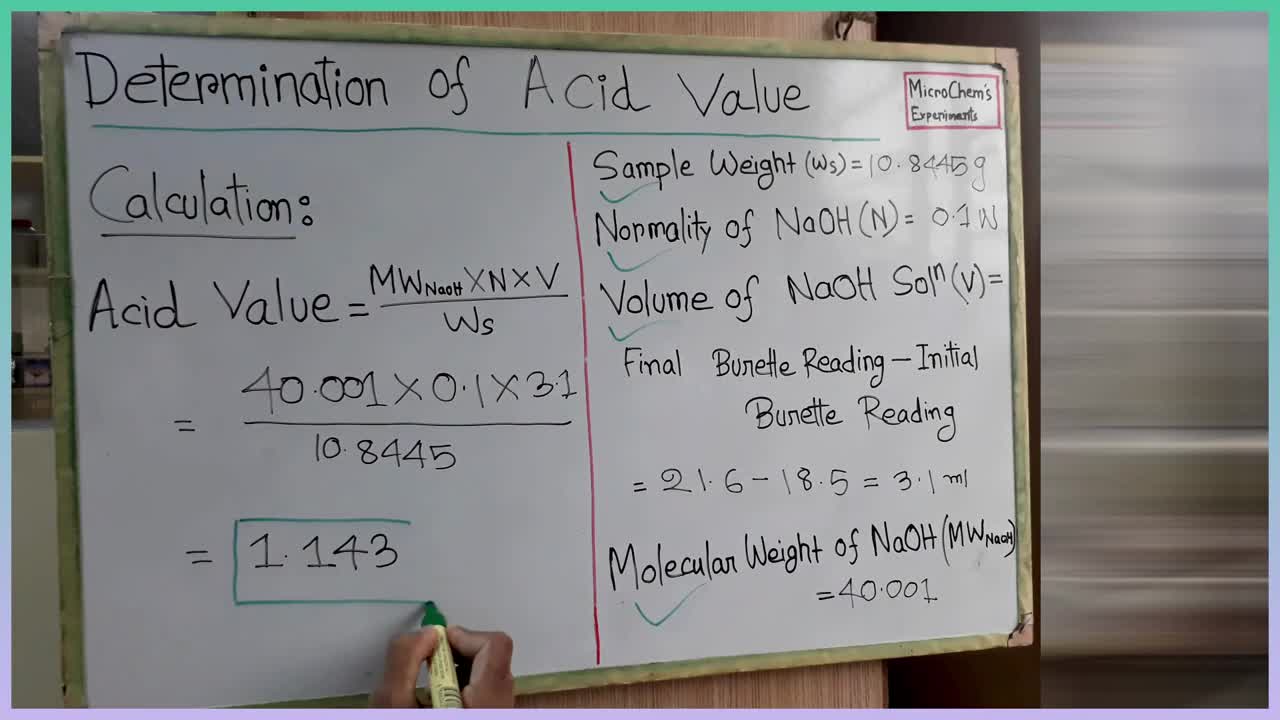 Determination of Acid Value
MicroChem's
Experiments
Calculation:
Acid Value = MW NaOH X N X V
Ws
= 40.001 X 0.1 X 3.1
10.8445
= 1.143
Sample Weight (Ws) = 10.8445 g
Normality of NaOH (N) = 0.1 N
Volume of NaOH Solⁿ (V) =
Final Burette Reading - Initial
Burette Reading
= 21.6 - 18.5 = 3.1 ml
Molecular Weight of NaOH (MW NaOH)
= 40.001